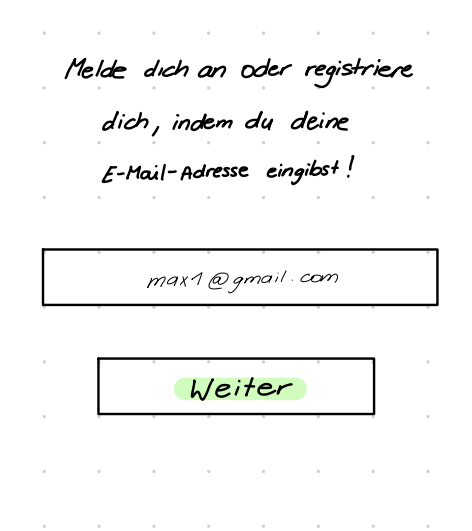 Melde dich an oder registriere
dich, indem du deine
E-Mail-Adresse eingibst!
max1@gmail.com
Weiter